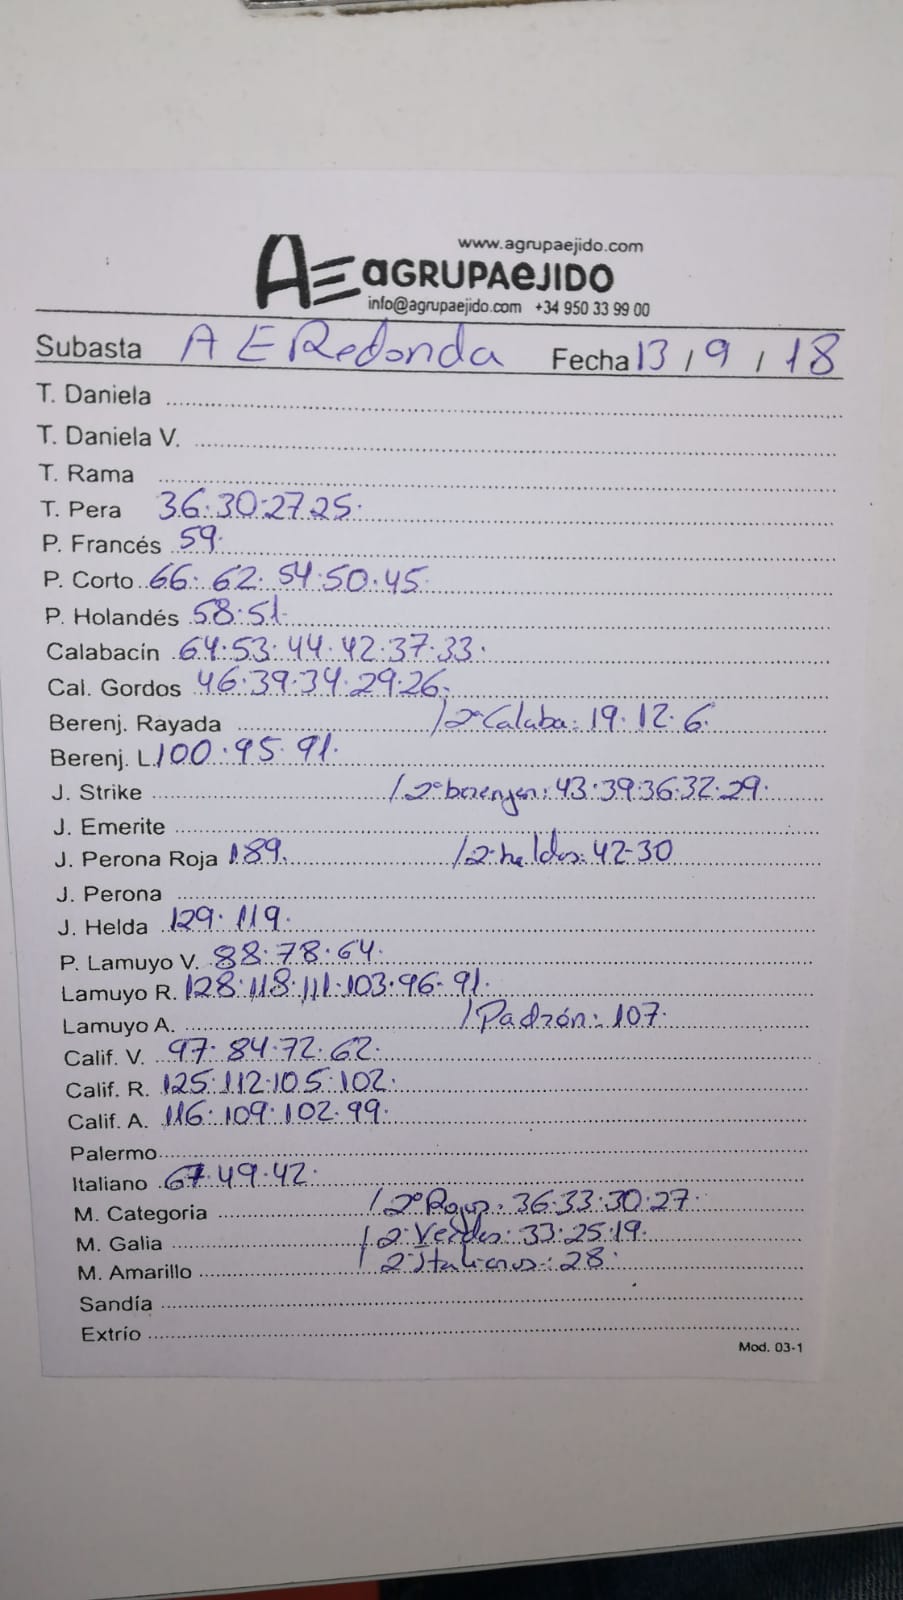 www.agrupaejido.com
AE aGRUPAeJIDO
info@agrupaejido.com +34 950 33 99 00
Subasta A E Redonda Fecha 13 / 9 / 18
T. Daniela
T. Daniela V.
T. Rama
T. Pera 36·30·27·25·
P. Francés 59·
P. Corto 66·62·54·50·45·
P. Holandés 58·51·
Calabacín 64·53·44·42·37·33·
Cal. Gordos 46·39·34·29·26·
Berenj. Rayada /2ª Calaba: 19·12·6·
Berenj. L. 100·95·91·
J. Strike /2ª berenjen: 43·39·36·32·29·
J. Emerite
J. Perona Roja 189· /2ª heldas: 42-30
J. Perona
J. Helda 129·119·
P. Lamuyo V. 88·78·64·
Lamuyo R. 128·118·111·103·96·91·
Lamuyo A. /Padrón: 107·
Calif. V. 97·84·72·62·
Calif. R. 125·112·105·102·
Calif. A. 116·109·102·99·
Palermo
Italiano 67·49·42·
M. Categoria /2ª Rojos: 36·33·30·27·
M. Galia /2ª Verdes: 33·25·19·
M. Amarillo /2ª Italianos: 28·
Sandía
Extrío
Mod. 03-1